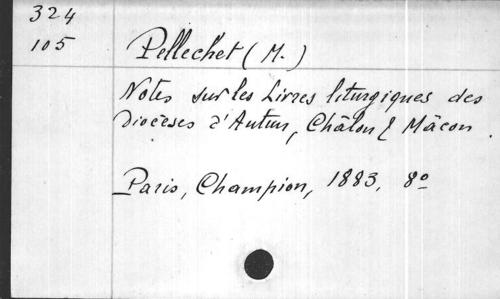 324
105
Pellechet (M.)
Notes sur les Livres liturgiques des
Diocèses d'Autun, Châlon & Mâcon.
Paris, Champion, 1883, 8º